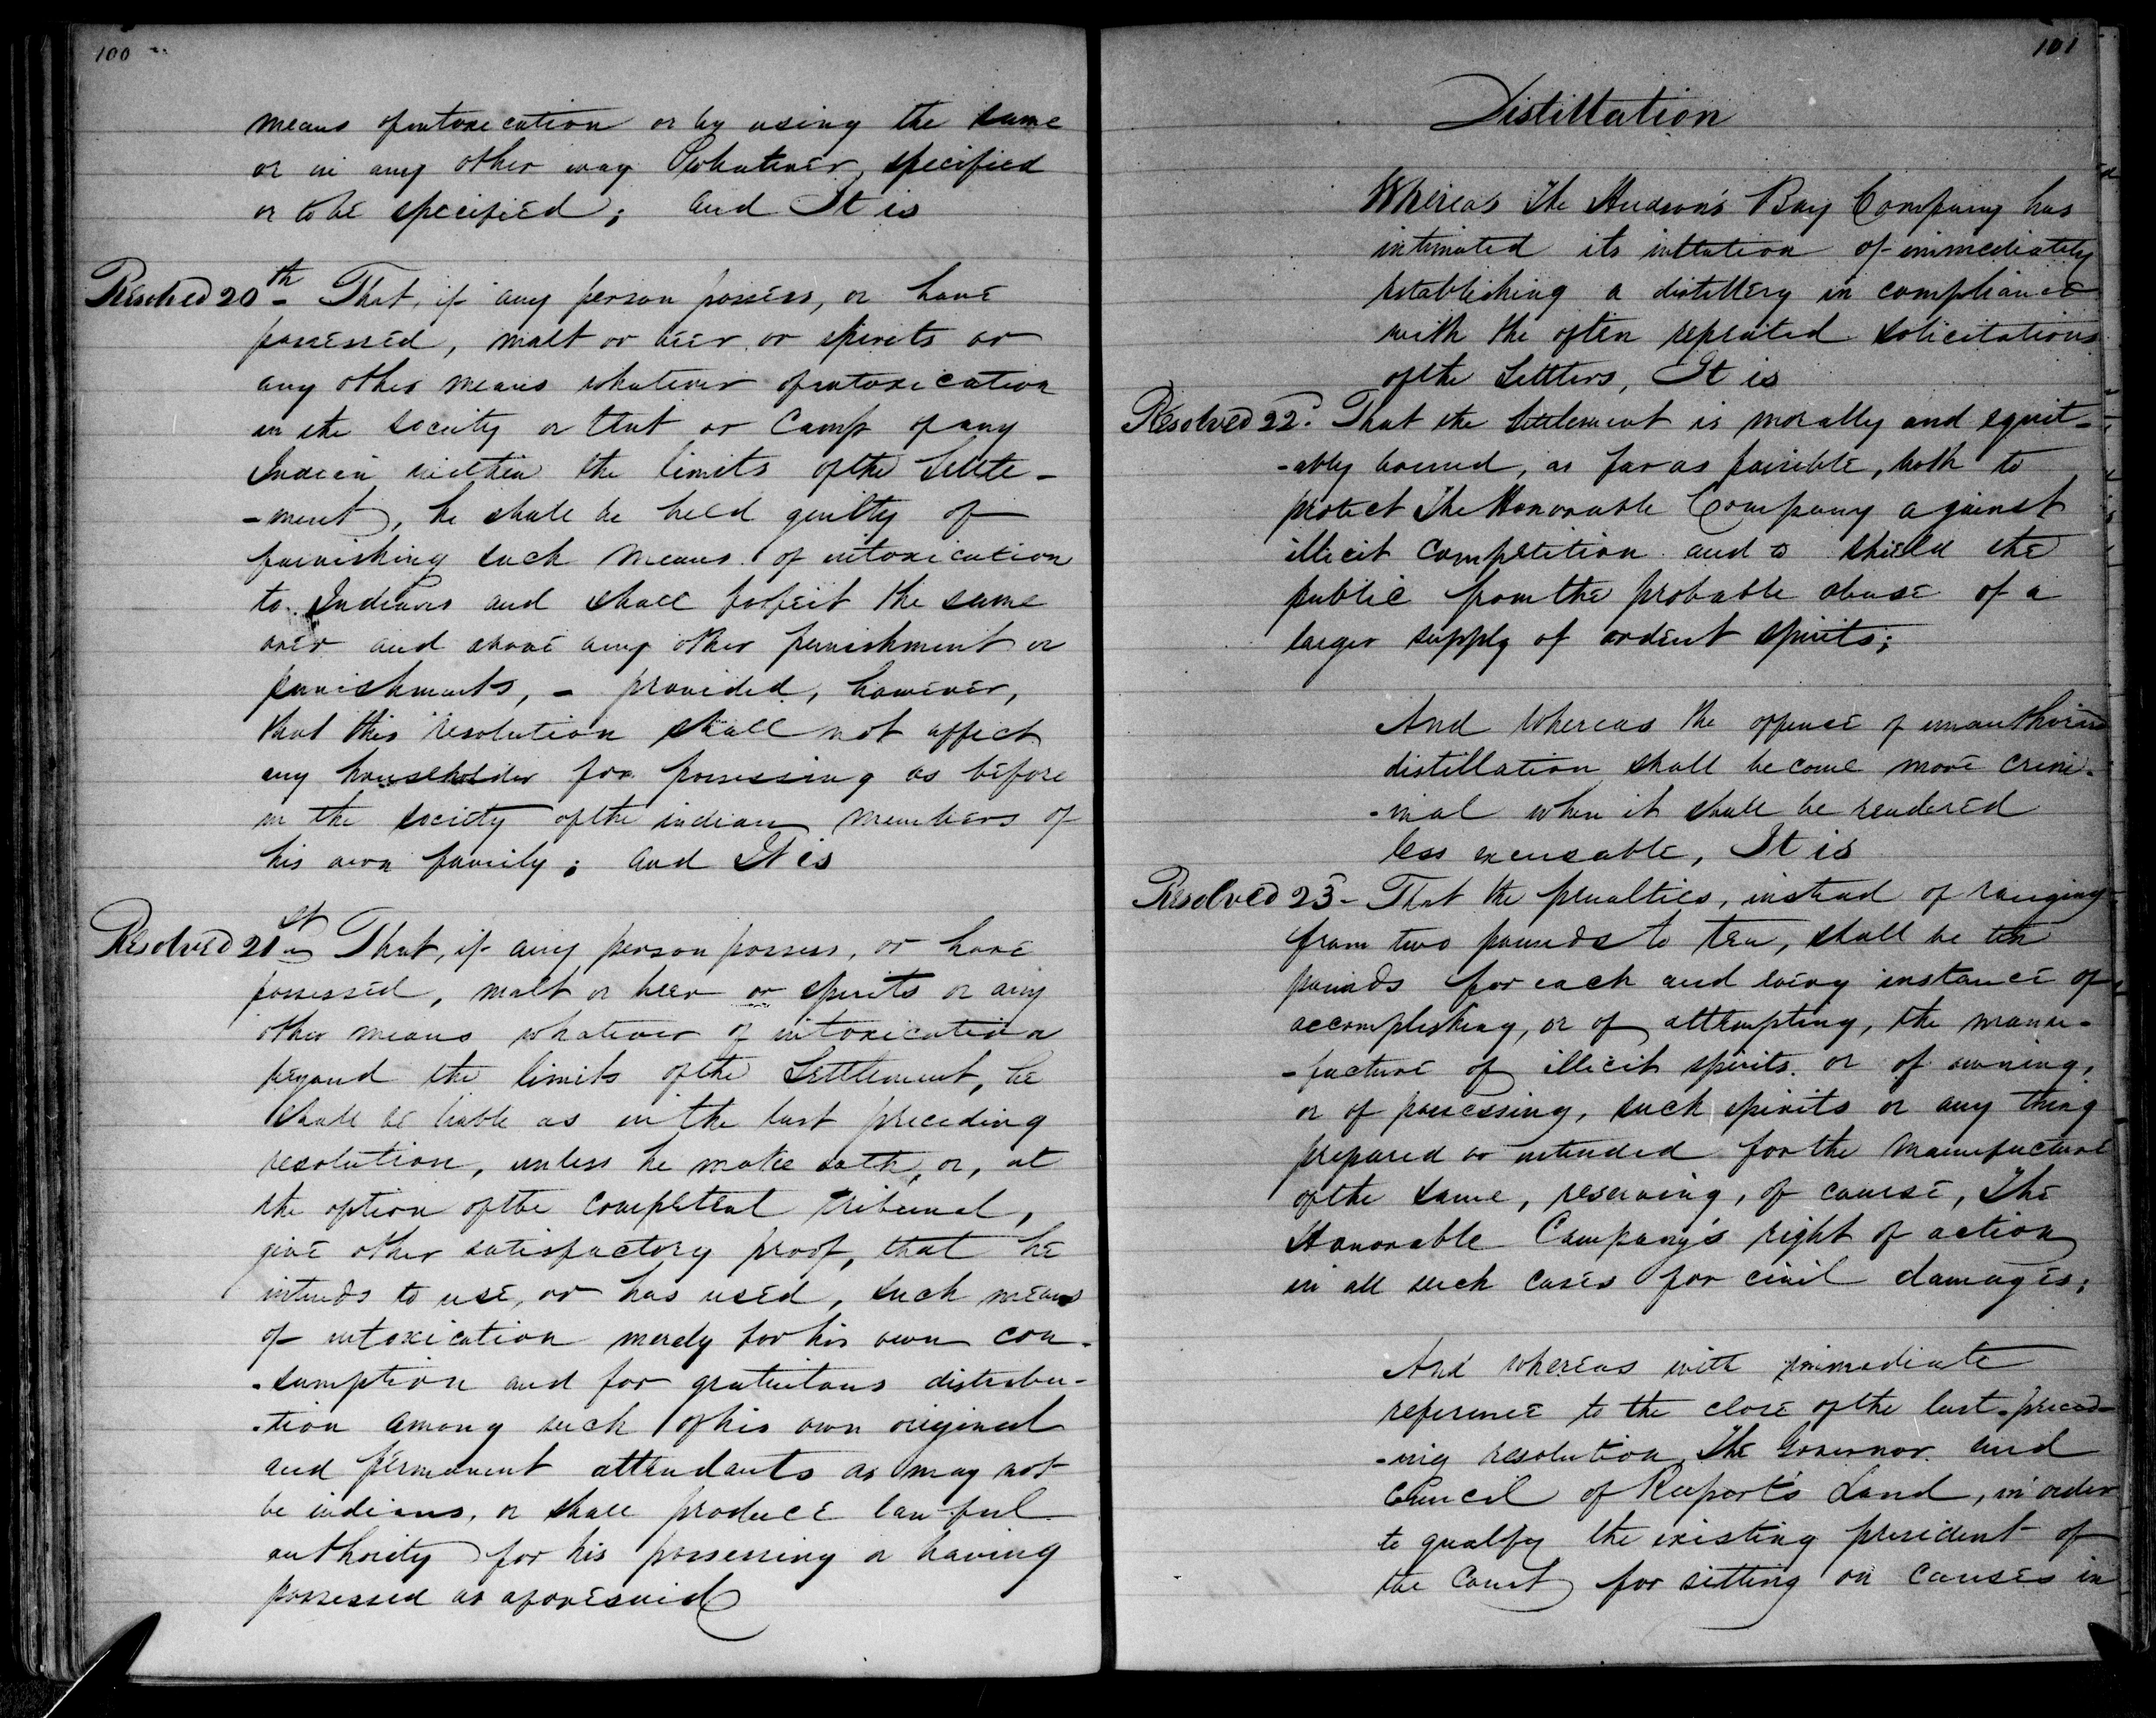 100
means of intoxication or by using the same
or in any other way whatever, specified
or to be specified; and It is
Resolved 20th - That, if any person possess, or have
possessed, malt or beer or spirits or
any other means whatever of intoxication
in the society or tent or camp of any
Indian within the limits of the Settle-
-ment, he shall be held guilty of
furnishing such means of intoxication
to Indians and shall forfeit the same
over and above any other punishment or
punishments, - provided, however,
that this resolution shall not affect
any householder for possessing as before
in the society of the indian members of
his own family; and It is
Resolved 21st - That, if any person possess, or have
possessed, malt or beer or spirits or any
other means whatever of intoxication
beyond the limits of the Settlement, he
shall be liable as in the last preceding
resolution, unless he make oath, or, at
the option of the competent tribunal,
give other satisfactory proof, that he
intends to use, or has used, such means
of intoxication merely for his own con-
-sumption and for gratuitous distribu-
-tion among such of his own original
and permanent attendants as may not
be indians, or shall produce lawful
authority for his possessing or having
possessed as aforesaid
101
Distillation
Whereas The Hudson's Bay Company has
intimated its intention of immediately
establishing a distillery in compliance
with the often repeated solicitations
of the Settlers, It is
Resolved 22. That the Settlement is morally and equit-
-ably bound, as far as possible, both to
protect The Honorable Company against
illicit competition and to shield the
public from the probable abuse of a
larger supply of ardent spirits;
And Whereas the offence of unauthorised
distillation shall become more crimi-
-nal when it shall be rendered
less excusable, It is
Resolved 23 - That the penalties, instead of ranging
from two pounds to ten, shall be ten
pounds for each and every instance of
accomplishing, or of attempting, the manu-
-facture of illicit spirits or of owning,
or of possessing, such spirits or any thing
prepared or intended for the manufacture
of the same, reserving, of course, The
Honorable Company's right of action
in all such cases for civil damages;
And whereas with immediate
reference to the close of the last preced-
-ing resolution The Governor and
Council of Rupert's Land, in order
to qualify the existing president of
the Court for sitting on causes in